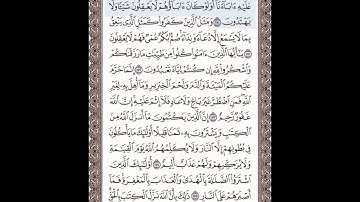 عَلَيْهِ ءَابَآءَنَآ أَوَلَوْ كَانَ ءَابَآؤُهُمْ لَا يَعْقِلُونَ شَيْـًٔا وَلَا
يَهْتَدُونَ ١٧٠ وَمَثَلُ ٱلَّذِينَ كَفَرُوا۟ كَمَثَلِ ٱلَّذِى يَنْعِقُ
بِمَا لَا يَسْمَعُ إِلَّا دُعَآءً وَنِدَآءً صُمٌّۢ بُكْمٌ عُمْىٌ فَهُمْ لَا يَعْقِلُونَ
١٧١ يَـٰٓأَيُّهَا ٱلَّذِينَ ءَامَنُوا۟ كُلُوا۟ مِن طَيِّبَـٰتِ مَا رَزَقْنَـٰكُمْ
وَٱشْكُرُوا۟ لِلَّهِ إِن كُنتُمْ إِيَّاهُ تَعْبُدُونَ ١٧٢ إِنَّمَا حَرَّمَ
عَلَيْكُمُ ٱلْمَيْتَةَ وَٱلدَّمَ وَلَحْمَ ٱلْخِنزِيرِ وَمَآ أُهِلَّ بِهِۦ لِغَيْرِ
ٱللَّهِ فَمَنِ ٱضْطُرَّ غَيْرَ بَاغٍ وَلَا عَادٍ فَلَآ إِثْمَ عَلَيْهِ إِنَّ ٱللَّهَ
غَفُورٌ رَّحِيمٌ ١٧٣ إِنَّ ٱلَّذِينَ يَكْتُمُونَ مَآ أَنزَلَ ٱللَّهُ مِنَ
ٱلْكِتَـٰبِ وَيَشْتَرُونَ بِهِۦ ثَمَنًا قَلِيلًا أُو۟لَـٰٓئِكَ مَا يَأْكُلُونَ
فِى بُطُونِهِمْ إِلَّا ٱلنَّارَ وَلَا يُكَلِّمُهُمُ ٱللَّهُ يَوْمَ ٱلْقِيَـٰمَةِ
وَلَا يُزَكِّيهِمْ وَلَهُمْ عَذَابٌ أَلِيمٌ ١٧٤ أُو۟لَـٰٓئِكَ ٱلَّذِينَ
ٱشْتَرَوُا۟ ٱلضَّلَـٰلَةَ بِٱلْهُدَىٰ وَٱلْعَذَابَ بِٱلْمَغْفِرَةِ فَمَآ
أَصْبَرَهُمْ عَلَى ٱلنَّارِ ١٧٥ ذَٰلِكَ بِأَنَّ ٱللَّهَ نَزَّلَ ٱلْكِتَـٰبَ بِٱلْحَقِّ